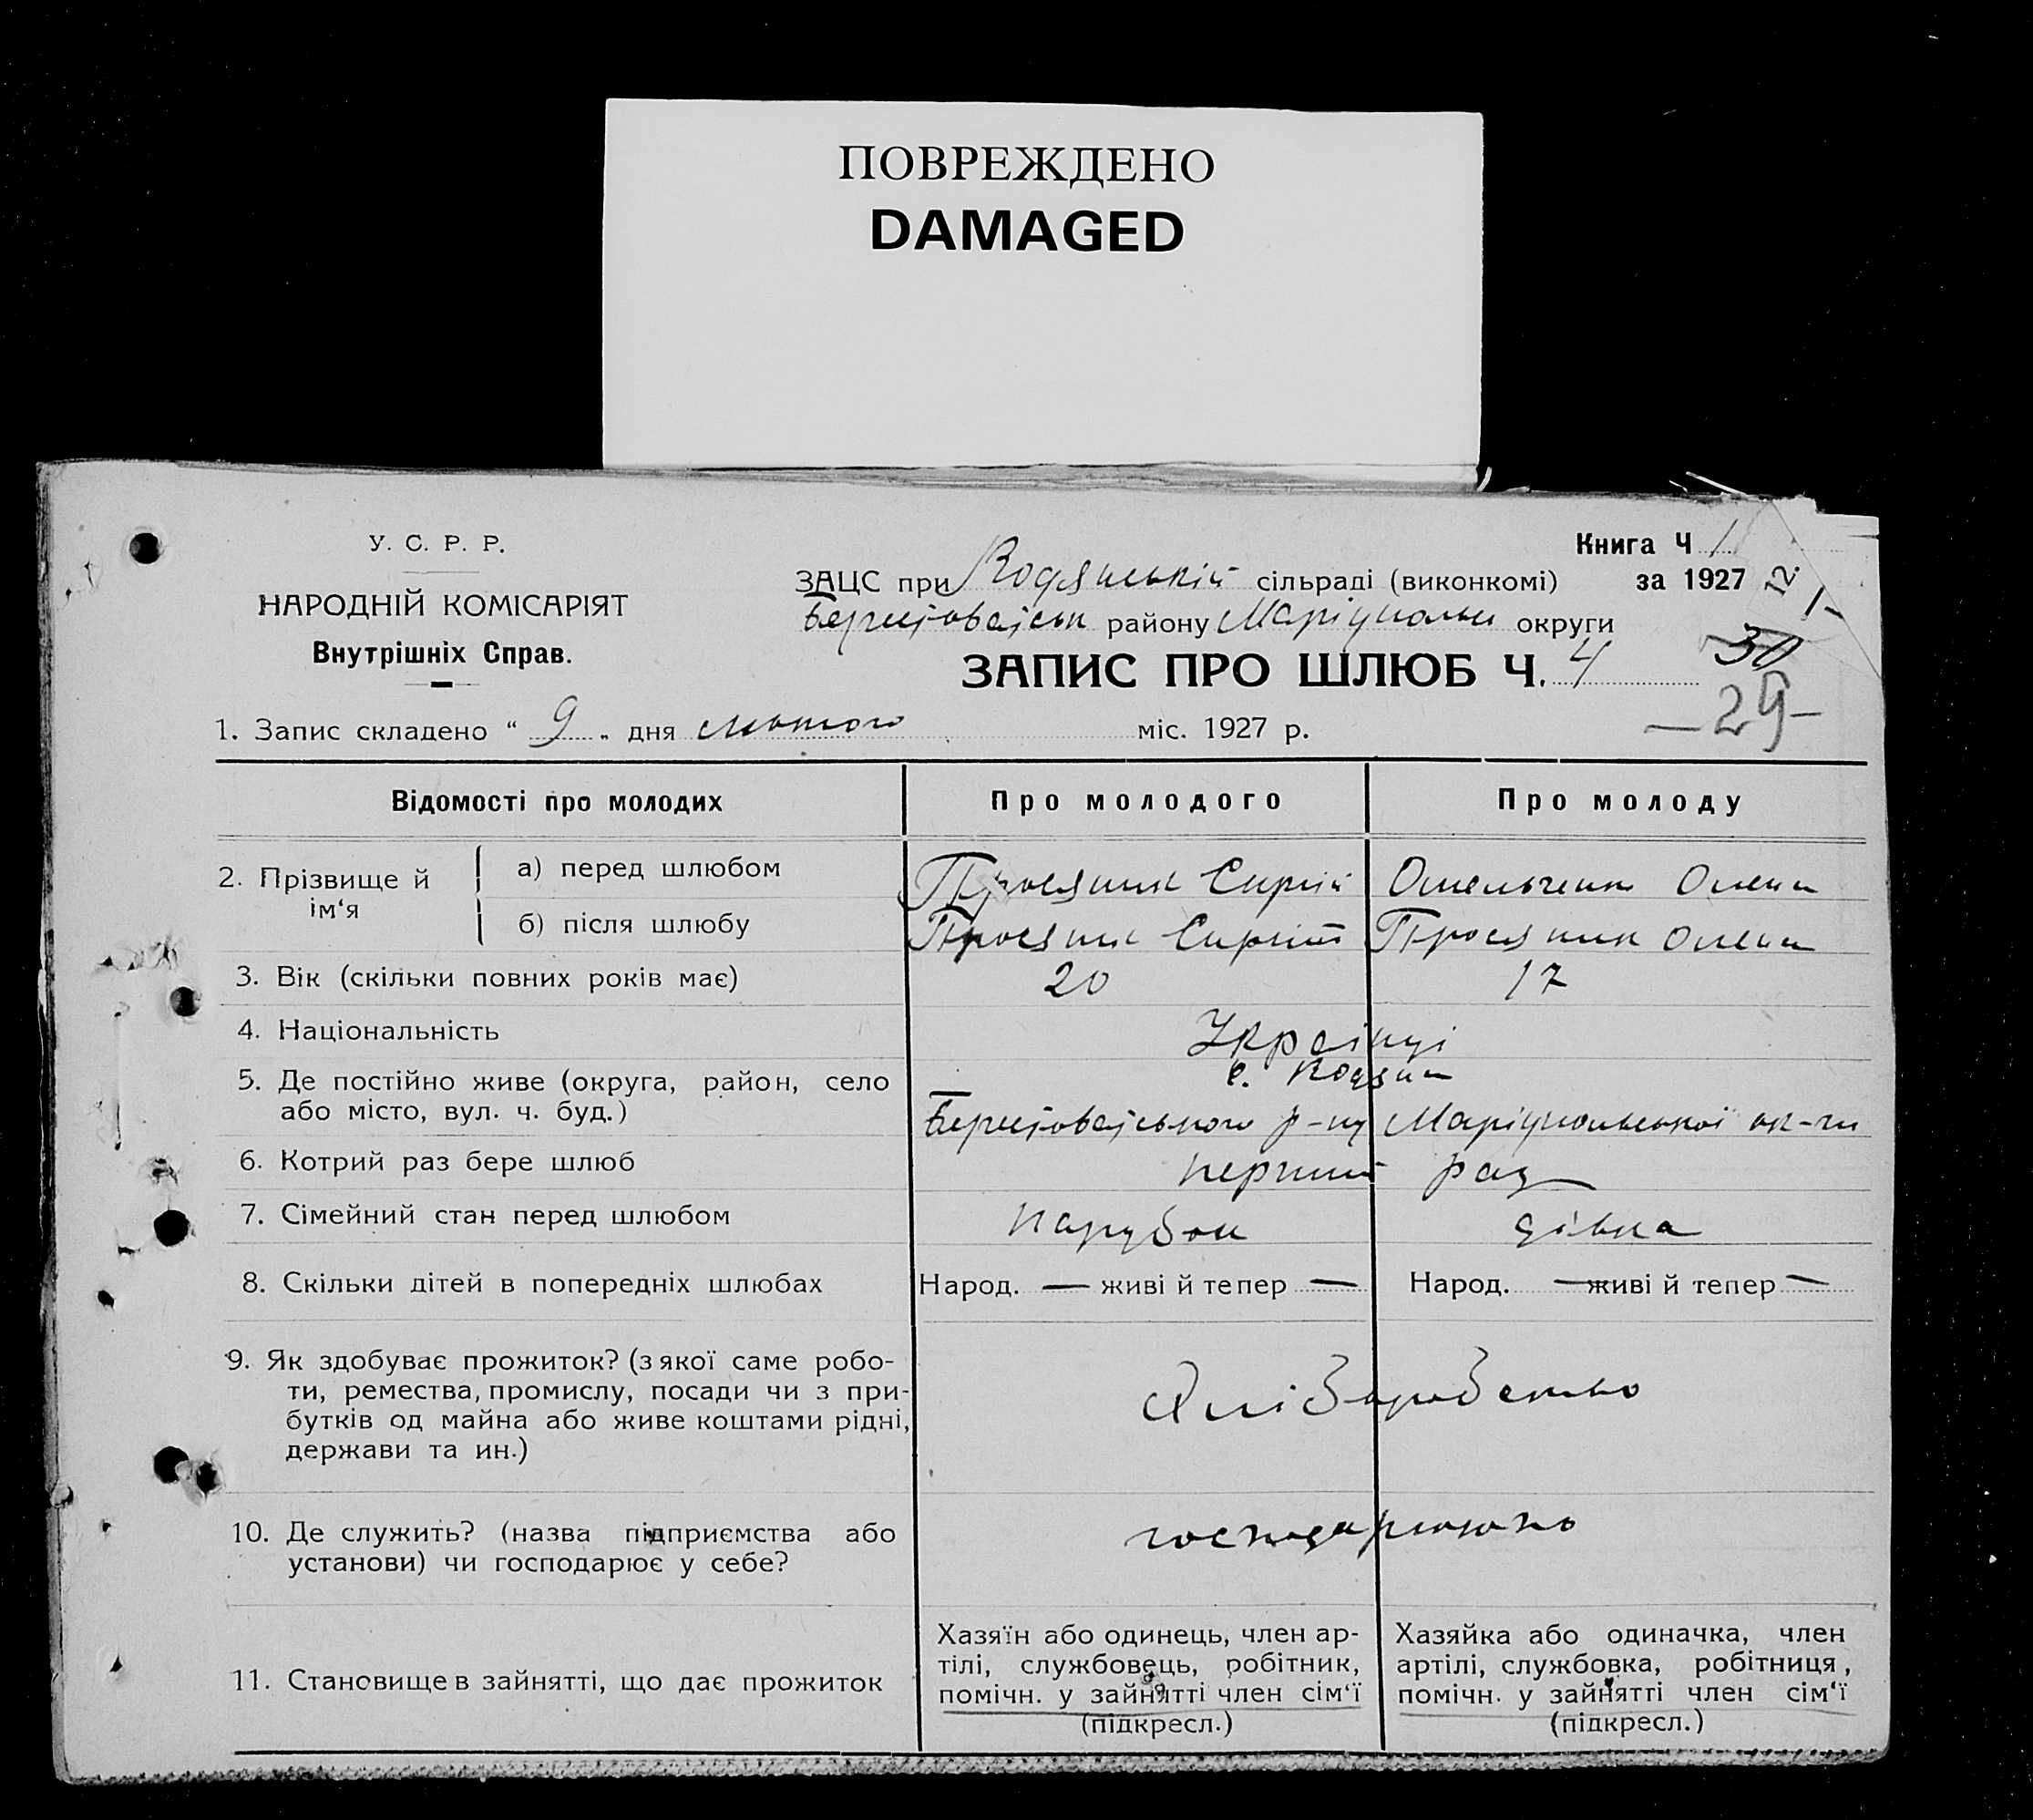 ПОВРЕЖДЕНО
DAMAGED
У. С. Р. Р.
НАРОДНІЙ КОМІСАРІЯТ
Внутрішніх Справ.
Книга Ч 1
за 1927 12.
ЗАЦС при Водянській сільраді (виконкомі)
району Маріупольск округи
ЗАПИС ПРО ШЛЮБ Ч. 4
30
—29—
1. Запис складено “ 9 „ дня лютого міс. 1927 р.
Відомості про молодих Про молодого Про молоду
2. Прізвище й ім‘я
а) перед шлюбом Просяник Сергій Омельченко Олена
б) після шлюбу Просяник Сергій Просяник Олена
3. Вік (скільки повних років має) 20 17
4. Національність Українці
5. Де постійно живе (округа, район, село
або місто, вул. ч. буд.)
с. Водяна
р-ну Маріупольської ок-ги
6. Котрий раз бере шлюб перший раз
7. Сімейний стан перед шлюбом парубок дівка
8. Скільки дітей в попередніх шлюбах Народ. — живі й тепер — Народ. — живі й тепер —
9. Як здобуває прожиток? (з якої саме робо-
ти, ремества, промислу, посади чи з при-
бутків од майна або живе коштами рідні,
держави та ин.)
Хліборобство
10. Де служить? (назва підприємства або
установи) чи господарює у себе?
господарюють
11. Становище в зайнятті, що дає прожиток
Хазяїн або одинець, член ар-
тілі, службовець, робітник,
помічн. у зайнятті член сім‘ї
(підкресл.)
Хазяйка або одиначка, член
артілі, службовка, робітниця,
помічн. у зайнятті член сім‘ї
(підкресл.)